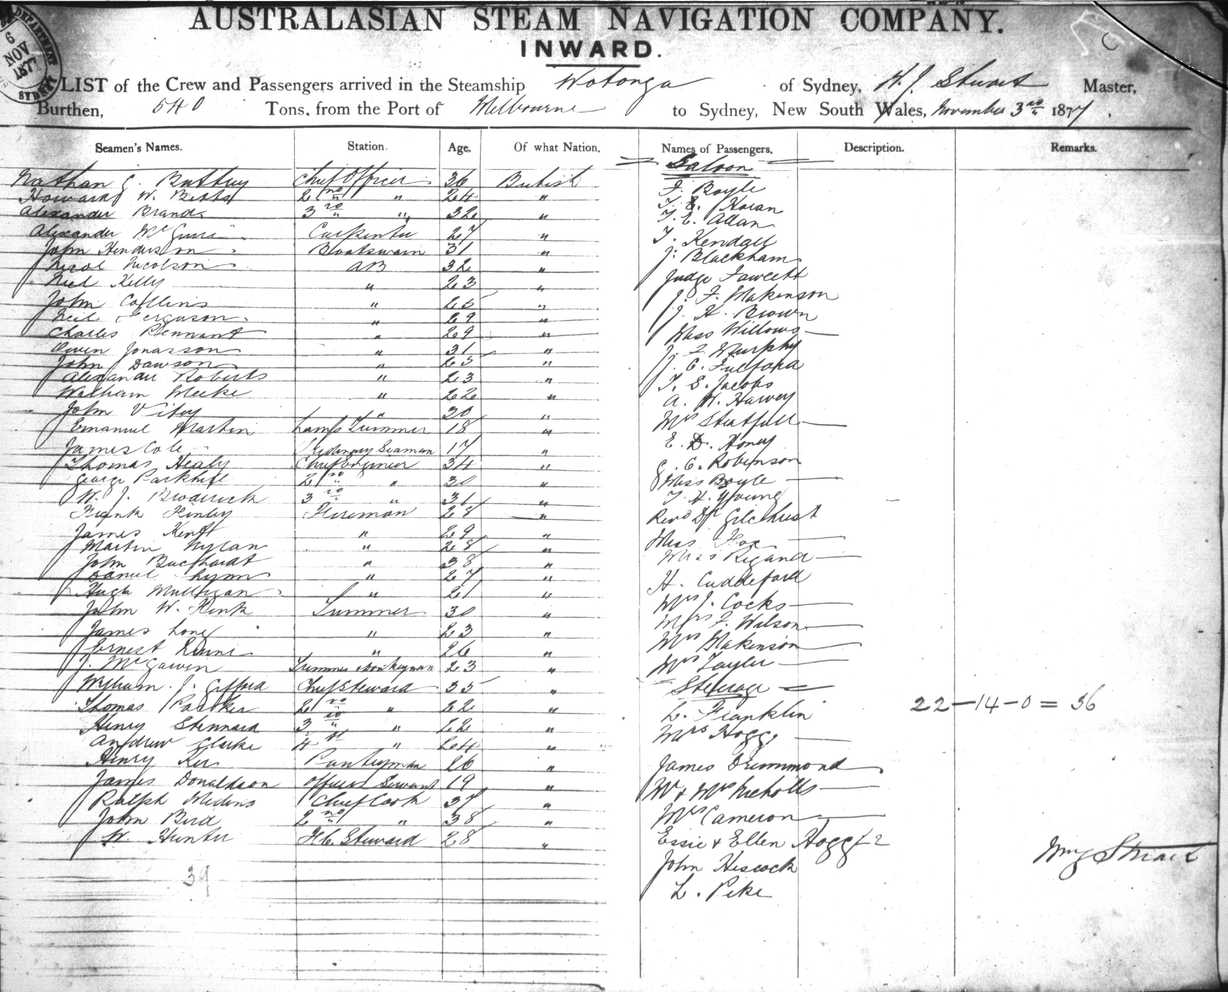 AUSTRALASIAN STEAM NAVIGATION COMPANY.
INWARD.
6 NOV 1877 SYDNEY
LIST of the Crew and Passengers arrived in the Steamship Wotonga of Sydney, W. J. Stuart Master,
Burthen, 540 Tons, from the Port of Melbourne to Sydney, New South Wales, November 3rd 1877.
Seamen's Names. Station. Age. Of what Nation. Names of Passengers, Description. Remarks.
Saloon
Nathan Chief Officer 36 British F. Boyle
Howard W. Betts 2nd " 24 " Horan
Alexander Brand 3rd " 32 " T. E. Allan
Alexander Carpenter 27 " T. Kendall
John Henderson Boatswain 31 " J. Blackham
Nicol Nicolson AB 32 " Judge Fawcett
Neil Kelly " 23 " J. F. Makinson
John Collins " 25 " J. H. Brown
Neil Ferguson " 29 " Miss Willows
Charles Pennant " 29 " Murphy
Owen Jonasson " 31 " J. C. Fulford
John Dawson " 25 " T. S. Jacobs
Alexander Roberts " 23 " A. W. Harvey
William Meeke " 22 "
John " 20 " Mrs
Emanuel Martin Lamp Trimmer 18 " E. D. Honey
James Cole Ordinary Seaman 17 " C. Robinson
Thomas Healy Chief Engineer 34 " Miss Boyle
George Parkhill 2nd " 30 " T. H. Young
W. J. Broderick 3rd " 31 " Revd Dr Gilchrist
Frank Finley Fireman 28 " Miss
James Kent " 29 " Miss
Martin Nylan " 28 "
John " 38 " H. Cuddeford
Daniel Lynn " 27 " Mrs J. Cocks
Hugh Mulligan " 21 " Mrs F. Wilson
John W. Trimmer 30 " Mrs Makinson
James Long " 23 " Mrs Tayler
Ernest " 26 " Steerage
J. McGawen Trimmer 23 " L. Franklin
William J. Gifford Chief Steward 35 " Mrs Hogg 22-14-0 = 36
Thomas Parker 2nd " 22 " James Drummond
Henry Stennard 3rd " 22 " Mr & Mrs Nicholls
Andrew Clarke 4th " 24 " Mrs Cameron
Henry Ker Pantryman 26 " Essie & Ellen Hogg 2
James Donaldson Officers Servant 19 " John Hiscock
Ralph Chief Cook 37 " L. Pike
John Bird 2nd " 38 "
W. Hunter F.C. Steward 28 "
Wm J Stuart
39